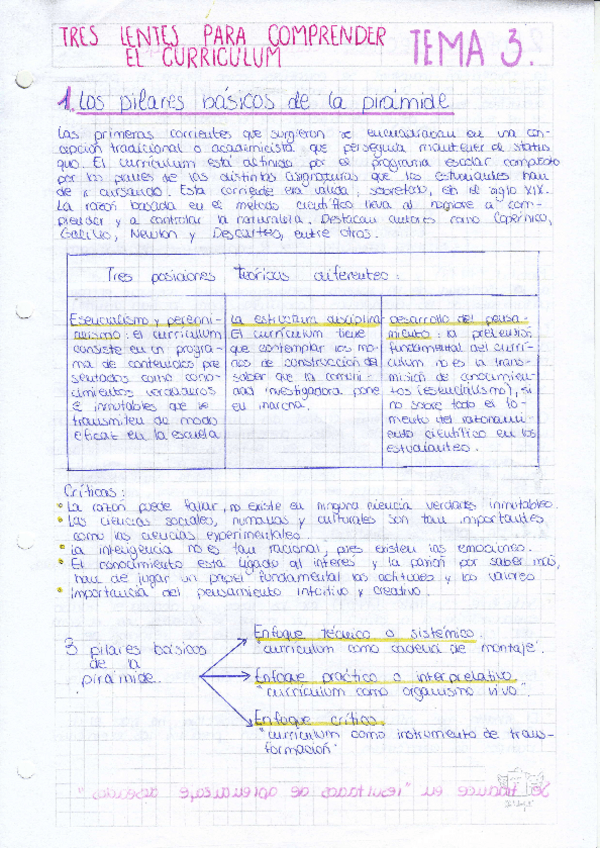 TRES LENTES PARA COMPRENDER
EL CURRICULUM
TEMA 3.
1. Los pilares básicos de la pirámide
Las primeras corrientes que surgieron se encuadraban en una con-
cepción tradicional o academicista que perseguía mantener el status
quo. El currículum está definido por el programa escolar compuesto
por los planes de las distintas asignaturas que los estudiantes han
de ir cursando. Esta corriente era válida, sobretodo, en el siglo XIX.
La razón basada en el método científico lleva al hombre a com-
prender y a controlar la naturaleza. Destacan autores como Copérnico,
Galileo, Newton y Descartes, entre otros.
Tres posiciones teóricas diferentes:
Esencialismo y perenni-
alismo: el curriculum
consiste en un progra-
ma de contenidos pre
sentados como cono-
cimientos verdaderos
e inmutables que se
transmiten de modo
eficaz en la escuela
La estructura disciplinar
El currículum tiene
que contemplar los mo-
dos de construcción del
saber que la comuni-
dad investigadora pone
en marcha.
Desarrollo del pensa-
miento: la pretensión
fundamental del currí-
culum no es la trans-
misión de conocimien-
tos (esencialismo), si
no sobre todo el fo-
mento del razonami-
ento científico en los
estudiantes.
Críticas:
• La razón puede fallar, no existe en ninguna ciencia verdades inmutables.
• Las ciencias sociales, humanas y culturales son tan importantes
como las ciencias experimentales.
• La inteligencia no es tan racional, pues existen las emociones.
• El conocimiento está ligado al interés y la pasión por saber más,
han de jugar un papel fundamental las actitudes y los valores
• Importancia del pensamiento intuitivo y creativo.
3 pilares básicos
de la
pirámide.
Enfoque técnico o sistémico.
"currículum como cadena de montaje".
Enfoque práctico o interpretativo.
"currículum como organismo vivo"
Enfoque crítico.
"currículum como instrumento de trans-
formación"
Se traduce en "resultados de aprendizaje esperados"